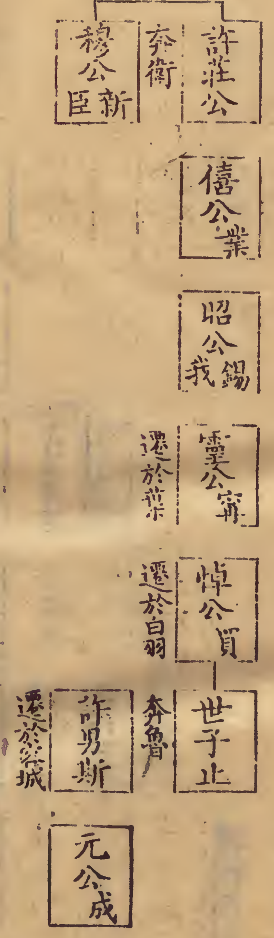 許莊公
奔衛
穆公新臣
僖公業
昭公錫我
靈公甯
遷於葉
悼公買
遷於白羽
世子止
奔魯
許男斯
遷於容城
元公成